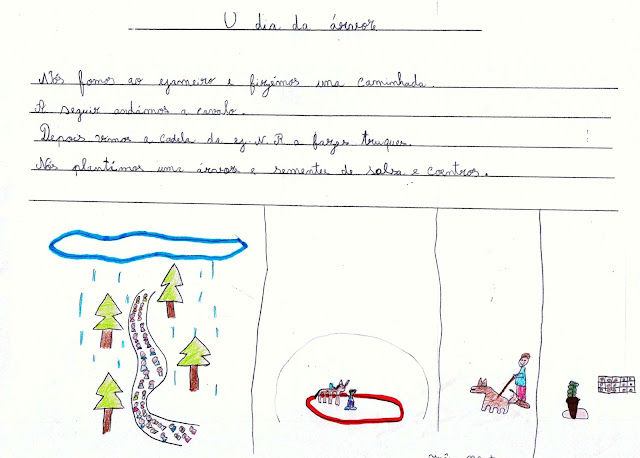 O dia da árvor
Nós fomos ao ejaneiro e fizémos uma caminhada.
A seguir andámos a cavalo.
Depois vimos a cadela da ej.N.R a fazer truques.
Nós plantámos uma árvore e sementes de salsa e coentros.